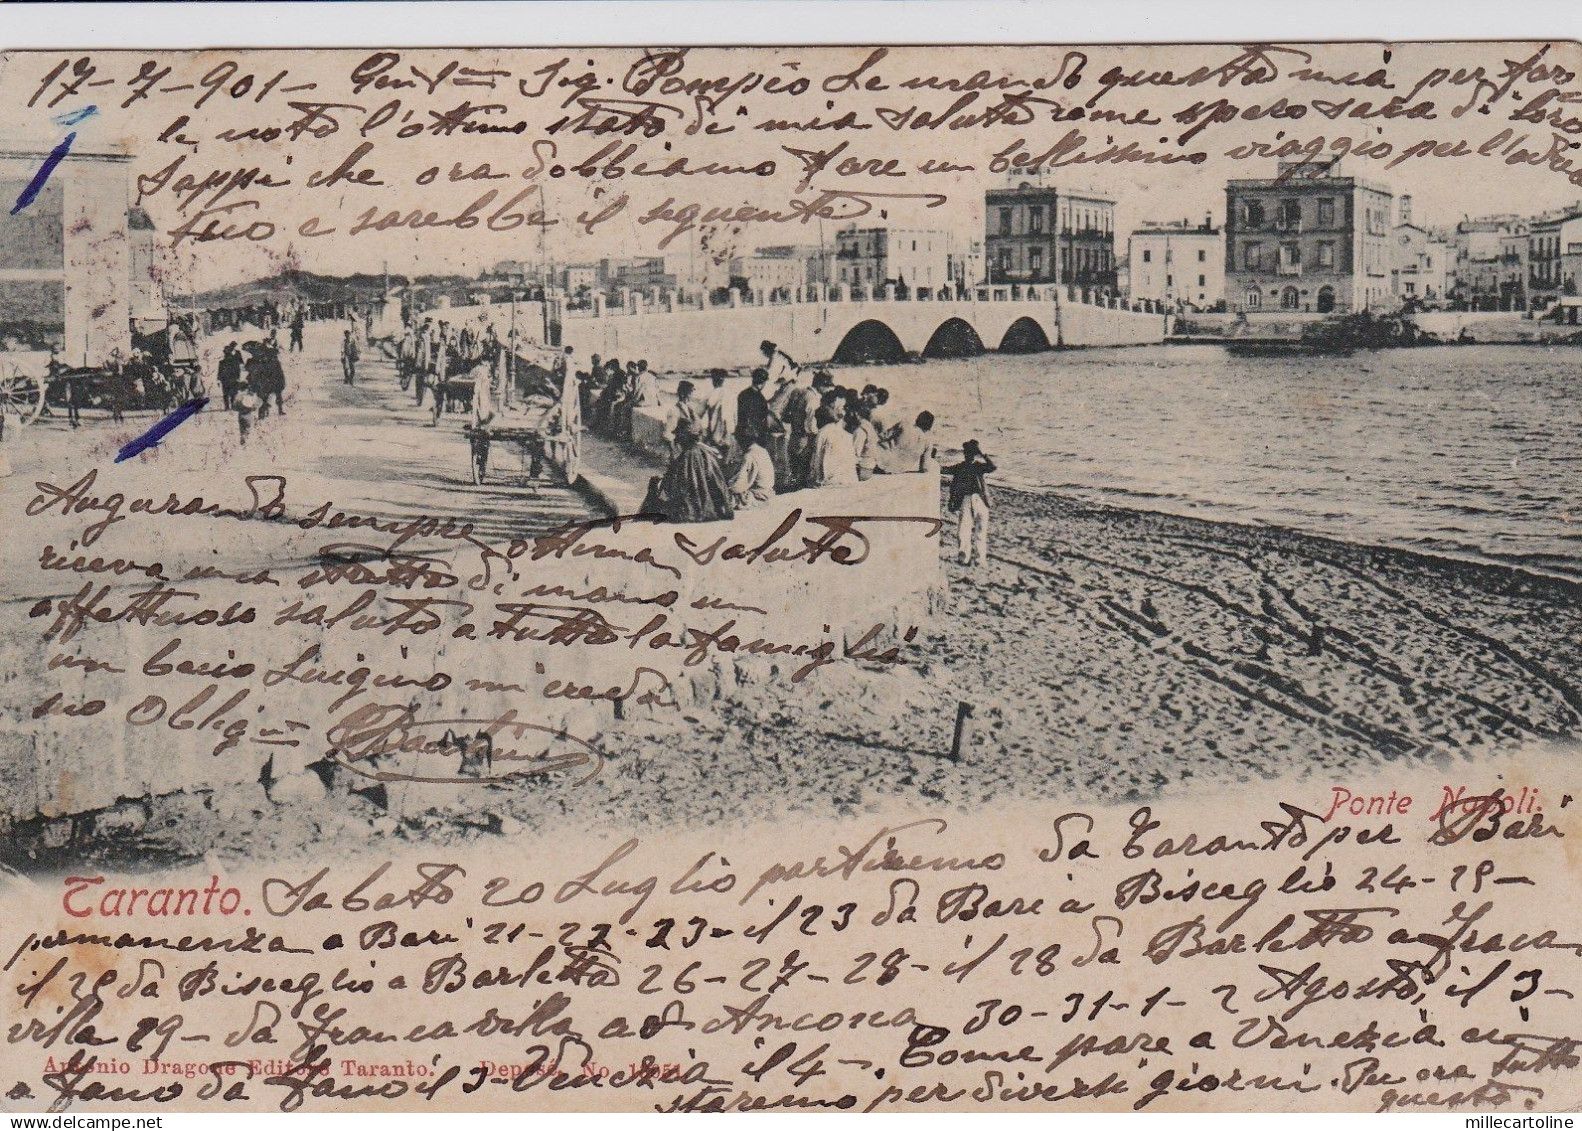 17-7-901- Gent= Sig. Pompeo Le mando questa mia per far
le noto l'ottimo stato di mia salute come spero sara di loro
Sappi che ora dobbiamo fare un bellissimo viaggio per l'adria
tico e sarebbe il seguente
Augurando sempre ottima salute
riceva una stretta di mano un
affettuoso saluto a tutta la famiglia
un bacio Luigino mi creda
suo Obblig=
Ponte Napoli.
Taranto. Sabato 20 Luglio partiremo da Taranto per Bari
permanenza a Bari 21-22-23- il 23 da Bari a Bisceglio 24-25-
il 25 da Bisceglio a Barletta 26-27-28- il 28 da Barletta a Fraca
villa 29- da Francavilla ad Ancona 30-31-1-2 Agosto, il 3-
a Fano da Fano il 3- Venezia il 4-. Come pare a Venezia ci
Antonio Dragone Editore Taranto. Deposé. No.
staremo per diversi giorni. Per ora tutto
questo.
millecartoline.com